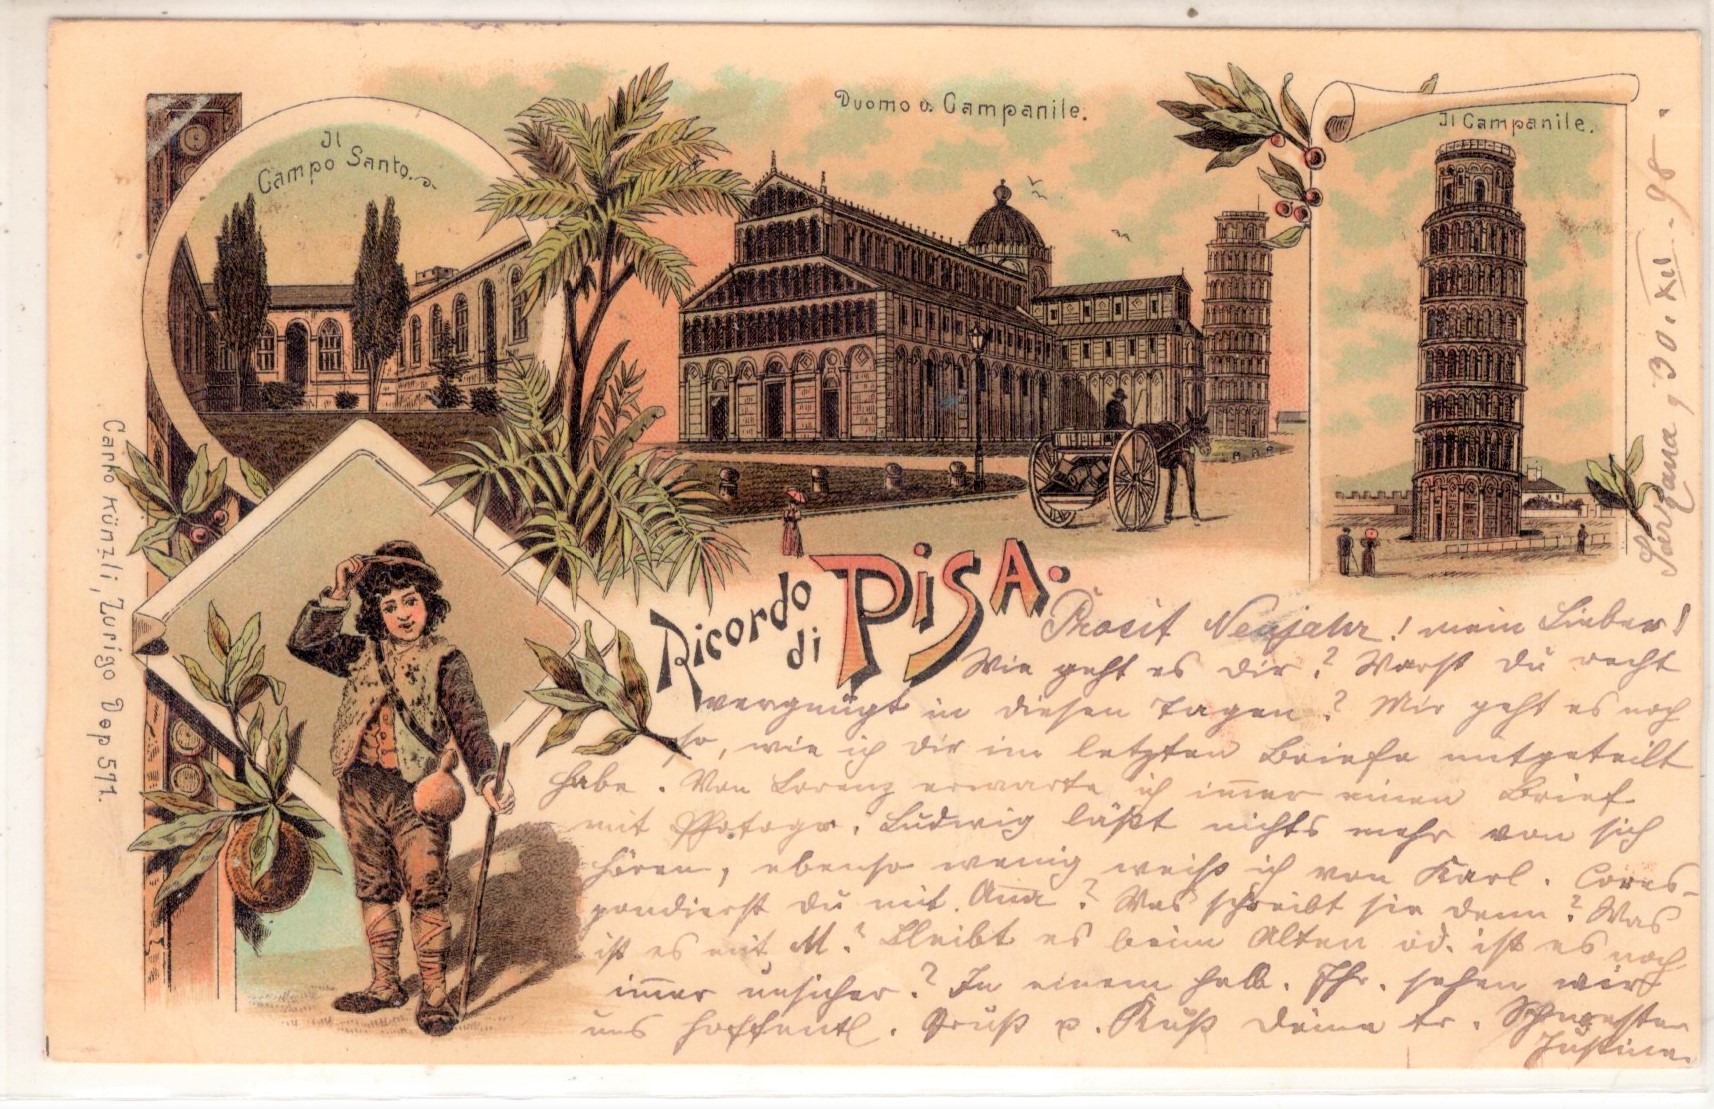 Il
Campo Santo.
Duomo o. Campanile.
Il Campanile.
Sarzana, 30. XII. 98.
Carlo Künzli, Zurigo Dep 511.
Ricordo
di PISA.
Prosit Neujahr! mein Lieber!
Wie geht es dir? Warst du recht
vergnügt in diesen Tagen? Mir geht es noch
so, wie ich dir im letzten Briefe mitgeteilt
habe. Von Lorenz erwarte ich im̅er einen Brief
mit Photogr. Ludwig läßt nichts mehr von sich
hören, ebenso wenig weiß ich von Karl. Cores-
pondierst du mit Anna? Was schreibt sie denn? Was
ist es mit M.? Bleibt es beim Alten od. ist es noch
im̅er unsicher? In einem halb. Jhr. sehen wir
uns hoffentl. Gruß u. Kuß deine tr. Schwester
Justina.